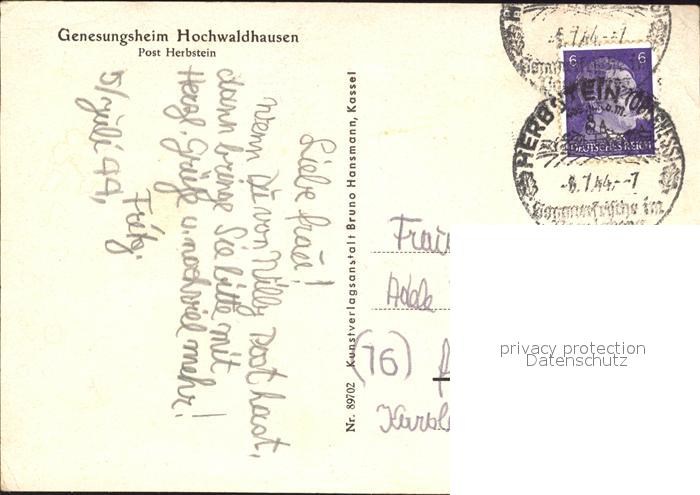 Genesungsheim Hochwaldhausen
Post Herbstein
5/Juli 44,
Liebe Frau!
Wenn Du von Willy Post hast,
dann bringe Sie bitte mit
Herzl. Grüße u. noch viel mehr!
Fritz.
Nr. 89702 Kunstverlagsanstalt Bruno Hansmann, Kassel
-8.7.44.--7
6 6
DEUTSCHES REICH
HERBSTEIN
-8.7.44.--7
Sommerfrische im
Frau
Adele
(16)
privacy protection
Datenschutz